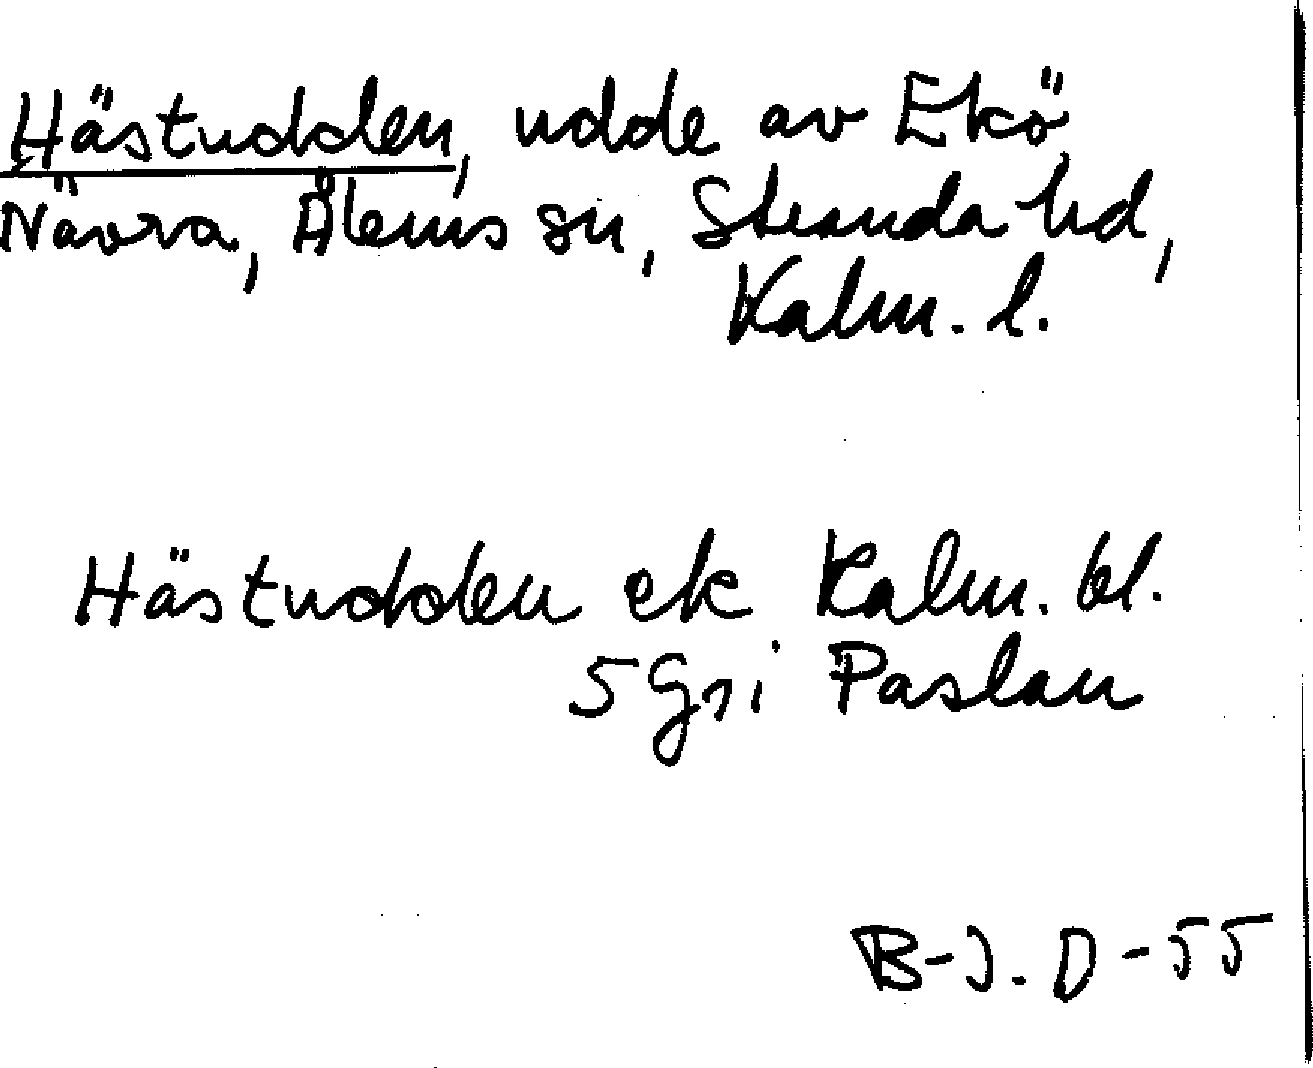 Hästudden, udde av Ekö
Nävra, Ålems sn, Stranda hd,
Kalm. l.
Hästudden ek Kalm. bl.
5 Gri Paslan
B-J. D -55